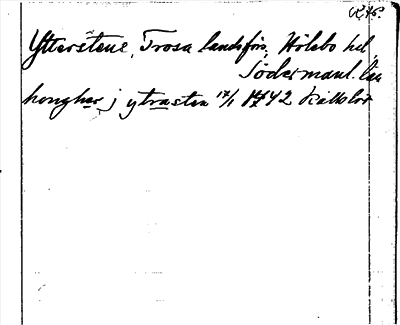 Ytterstene, Trosa landsförs, Hölebo hd,
Södermanl. län
honghar j ytrasten 17/1 1442